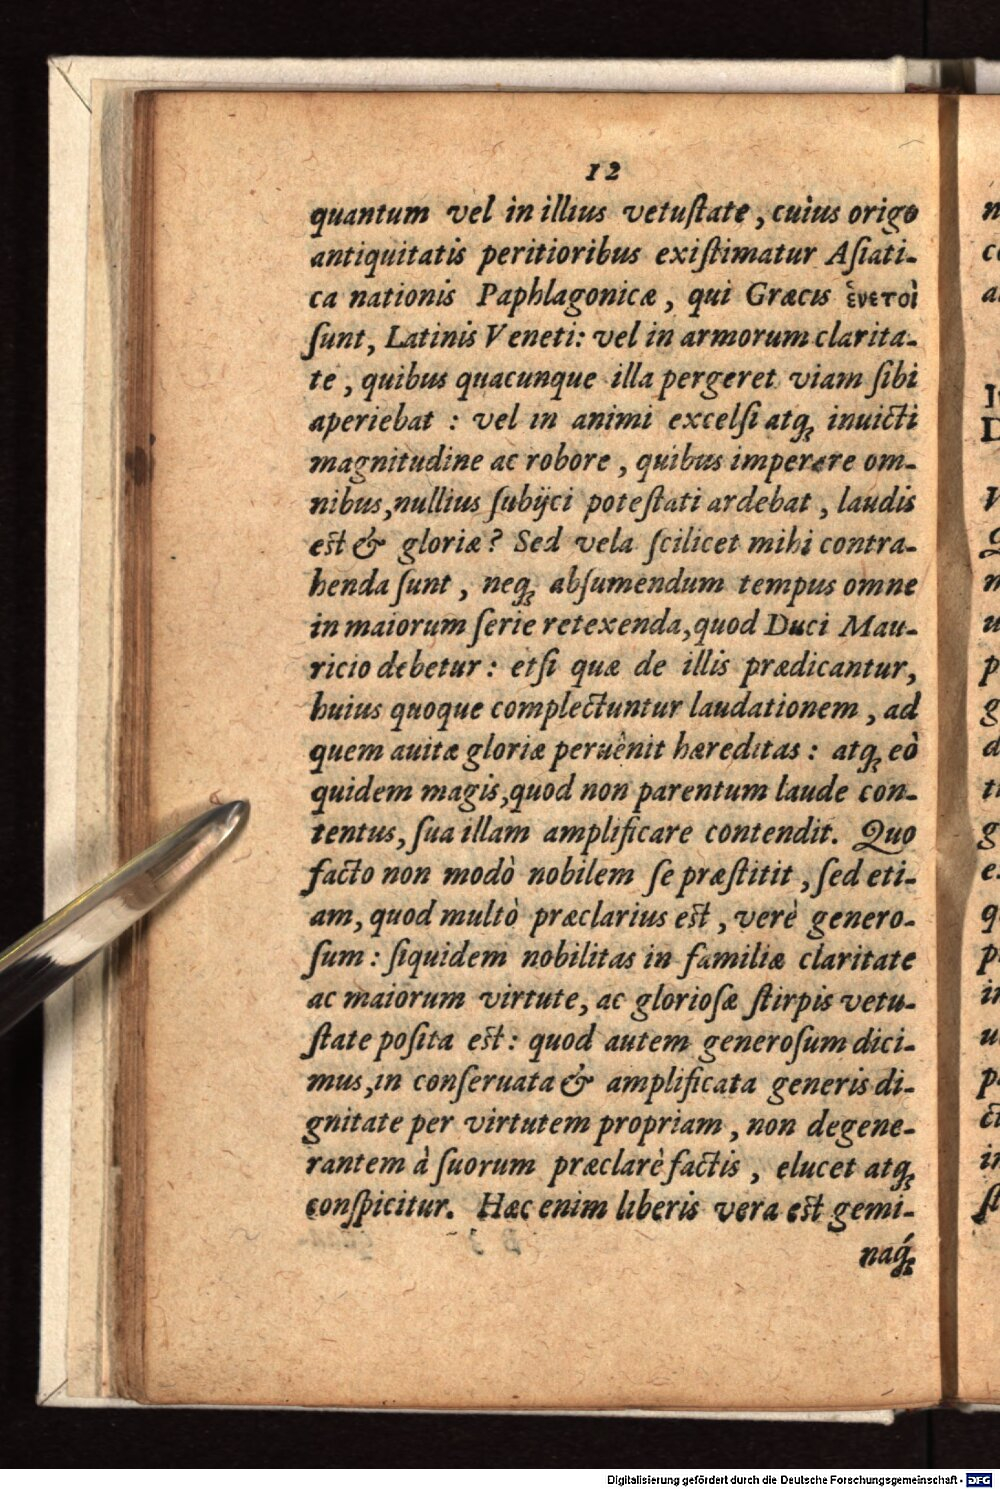 12
quantum vel in illius vetuſtate, cuius origo
antiquitatis peritioribus exiſtimatur Aſiati-
ca nationis Paphlagonicæ, qui Græcis ἑνετοὶ
ſunt, Latinis Veneti: vel in armorum clarita-
te, quibus quacunque illa pergeret viam ſibi
aperiebat: vel in animi excelſi atq; inuicti
magnitudine ac robore, quibus imperare om-
nibus, nullius ſubijci poteſtati ardebat, laudis
eſt & gloriæ? Sed vela ſcilicet mihi contra-
henda ſunt, neq; abſumendum tempus omne
in maiorum ſerie retexenda, quod Duci Mau-
ricio debetur: etſi quæ de illis prædicantur,
huius quoque complectuntur laudationem, ad
quem auitæ gloriæ peruênit hæreditas: atq; eò
quidem magis, quod non parentum laude con-
tentus, ſua illam amplificare contendit. Quo
facto non modò nobilem ſe præſtitit, ſed eti-
am, quod multò præclarius eſt, verè genero-
ſum: ſiquidem nobilitas in familiæ claritate
ac maiorum virtute, ac glorioſæ ſtirpis vetu-
ſtate poſita eſt: quod autem generoſum dici-
mus, in conſeruata & amplificata generis di-
gnitate per virtutem propriam, non degene-
rantem à ſuorum præclarè factis, elucet atq;
conſpicitur. Hæc enim liberis vera eſt gemi-
naq́;
Digitalisierung gefördert durch die Deutsche Forschungsgemeinschaft - DFG